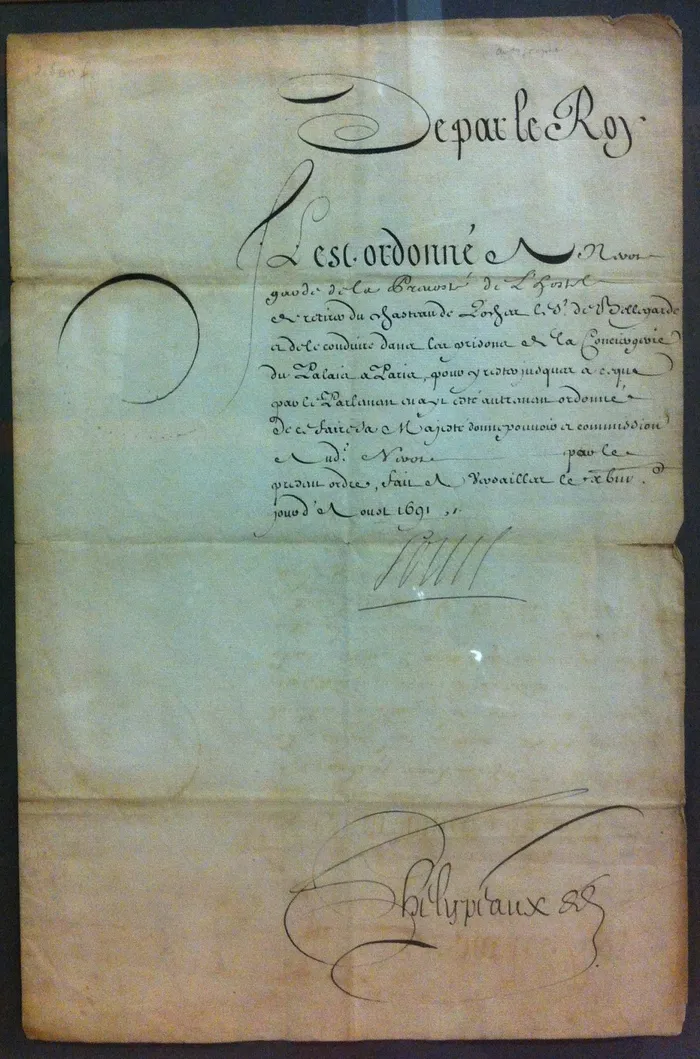 De par le Roy.
Il est ordonné A Nivot
garde de la Prevosté de L'hostel
de retirer du chasteau de Loches le Sr. de Bellegarde
et de le conduire dans les prisons de la Conciergerie
du Palais a Paris, pour y rester jusques a ce que
par le Parlement en ayt esté autrement ordonné
De ce faire Sa Majesté donne pouvoir et commission
Aud. Nivot par le
present ordre, fait A Versailles le
jour d'Aoust 1691
Louis
Phelypeaux